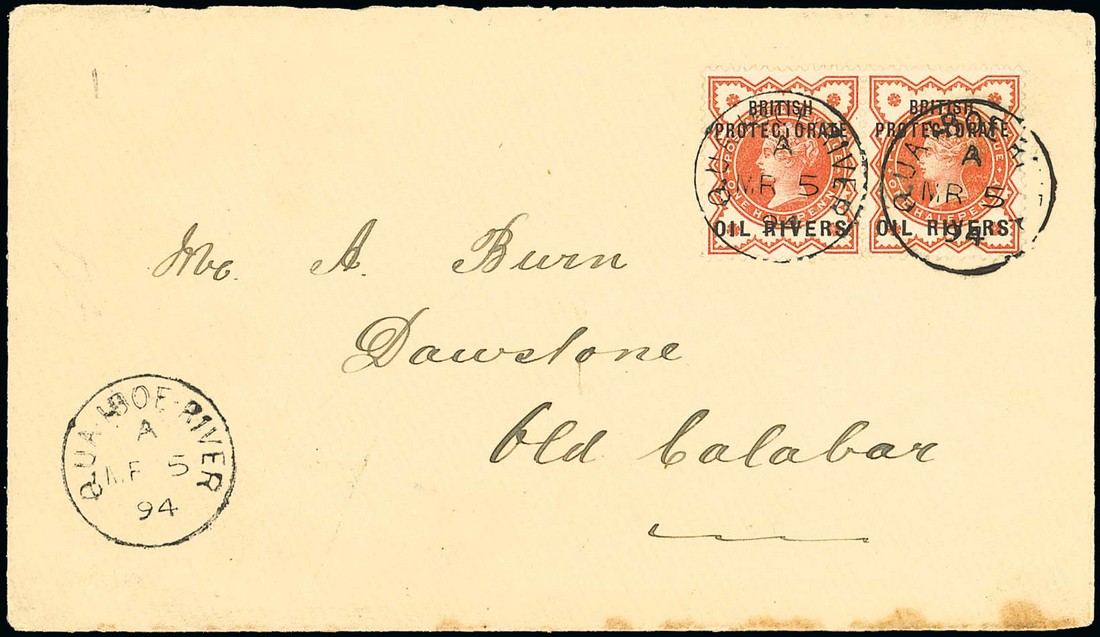 BRITISH
PROTECTORATE
ONE HALFPENNY
OIL RIVERS
RIVER
A
MR 5
94
BRITISH
PROTECTORATE
HALFPE
OIL RIVERS
QUA IBOE
A
MR 5
94
Mr. A. Burn
Dawstone
Old Calabar
QUA IBOE RIVER
A
MR 5
94